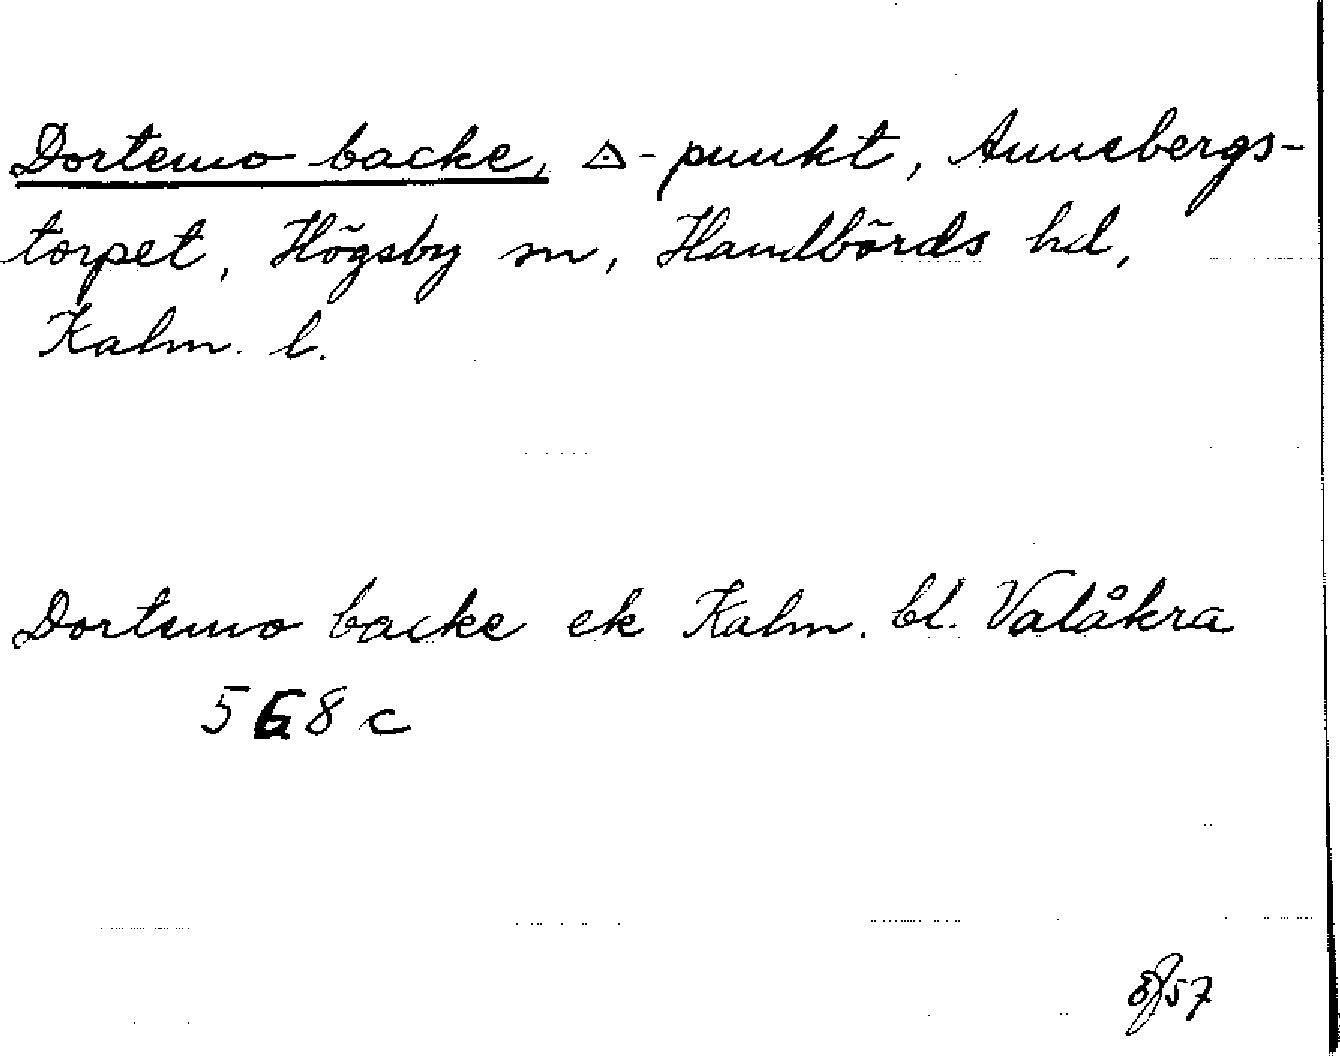 Dortemo backe, △-punkt, Annebergs-
torpet, Högsby sn, Handbörds hd,
Kalm. l.
Dortemo backe ek Kalm. bl. Valåkra
568c
57